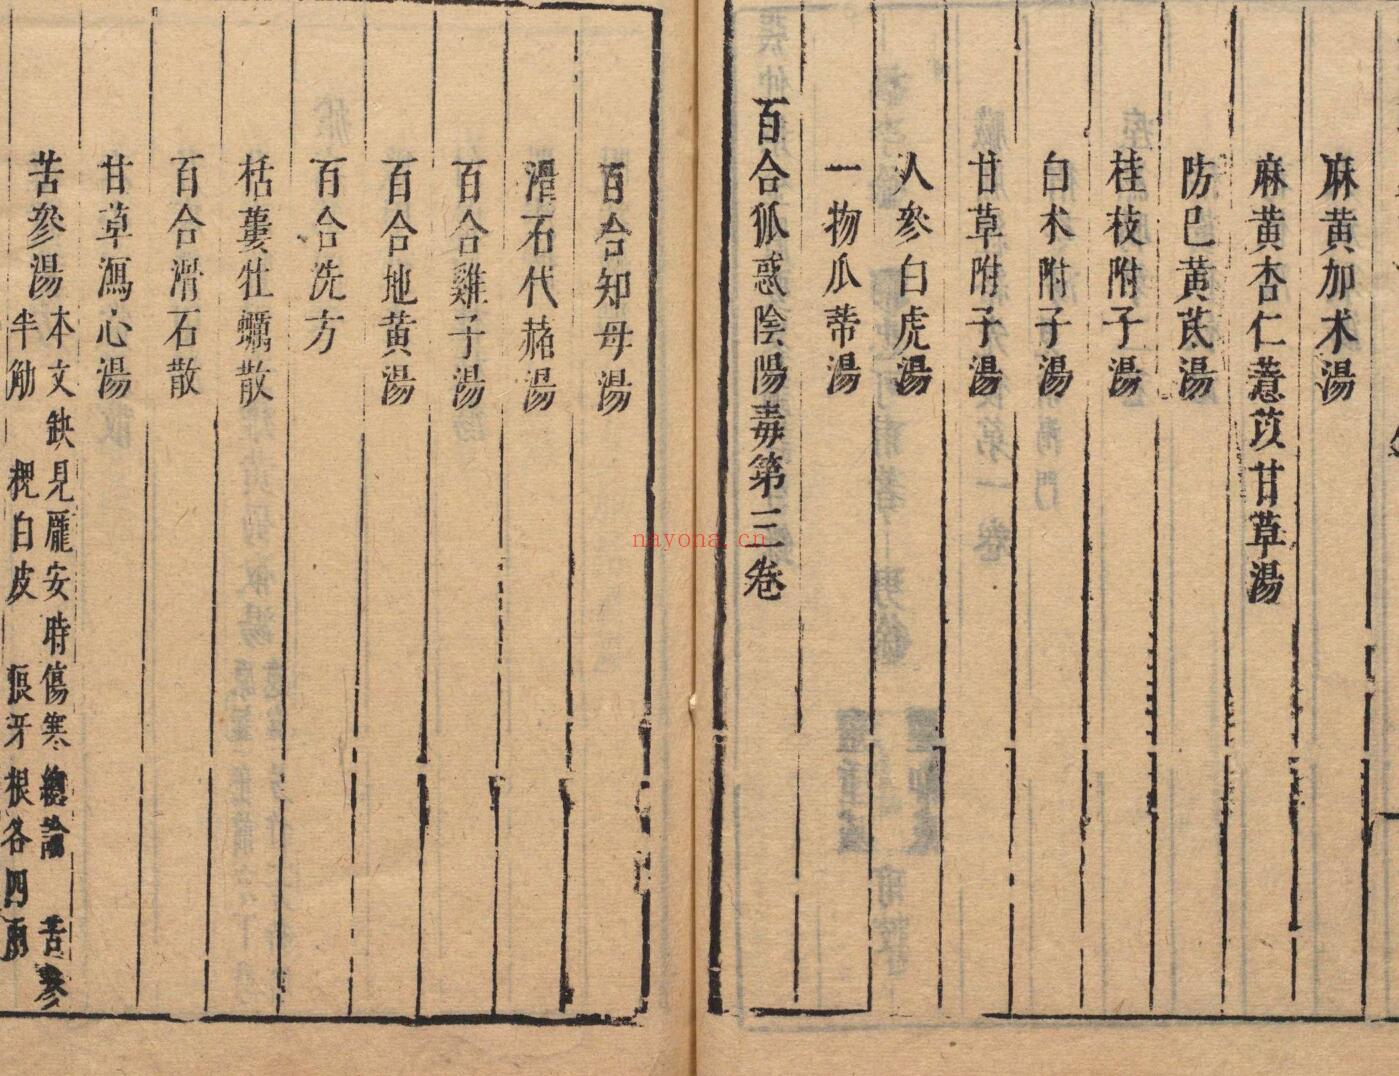 麻黄加术湯
麻黄杏仁薏苡甘草湯
防已黄芪湯
桂枝附子湯
白术附子湯
甘草附子湯
人參白虎湯
一物瓜蒂湯
百合狐惑陰陽毒第三卷
百合知母湯
滑石代赭湯
百合雞子湯
百合地黄湯
百合洗方
栝蔞牡蠣散
百合滑石散
甘草瀉心湯
苦參湯
本文缺見龐安時傷寒總論 苦參
半觔 槐白皮 狼牙根各四兩
nayona.cn